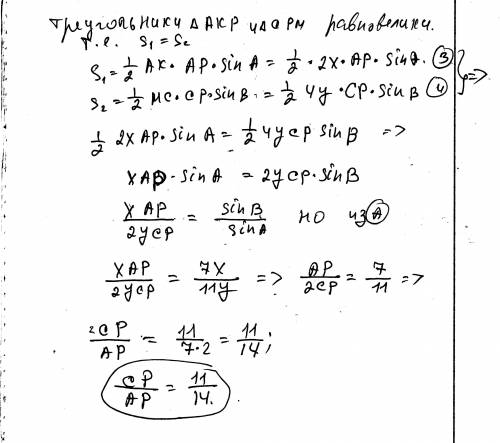 Треугольники Δ AKP и Δ CPM равновелики.
т.е. S₁ = S₂
S₁ = 1/2 AK · AP · sin A = 1/2 · 2x · AP · sin A. ③
S₂ = 1/2 MC · CP · sin B = 1/2 4y · CP · sin B ④ } =>
1/2 2x AP · sin A = 1/2 4y CP sin B =>
x AP · sin A = 2y CP · sin B
x AP / 2y CP = sin B / sin A но из Ⓐ
x AP / 2y CP = 7x / 11y => AP / 2CP = 7 / 11 =>
2CP / AP = 11 / 7·2 = 11 / 14;
CP / AP = 11 / 14.